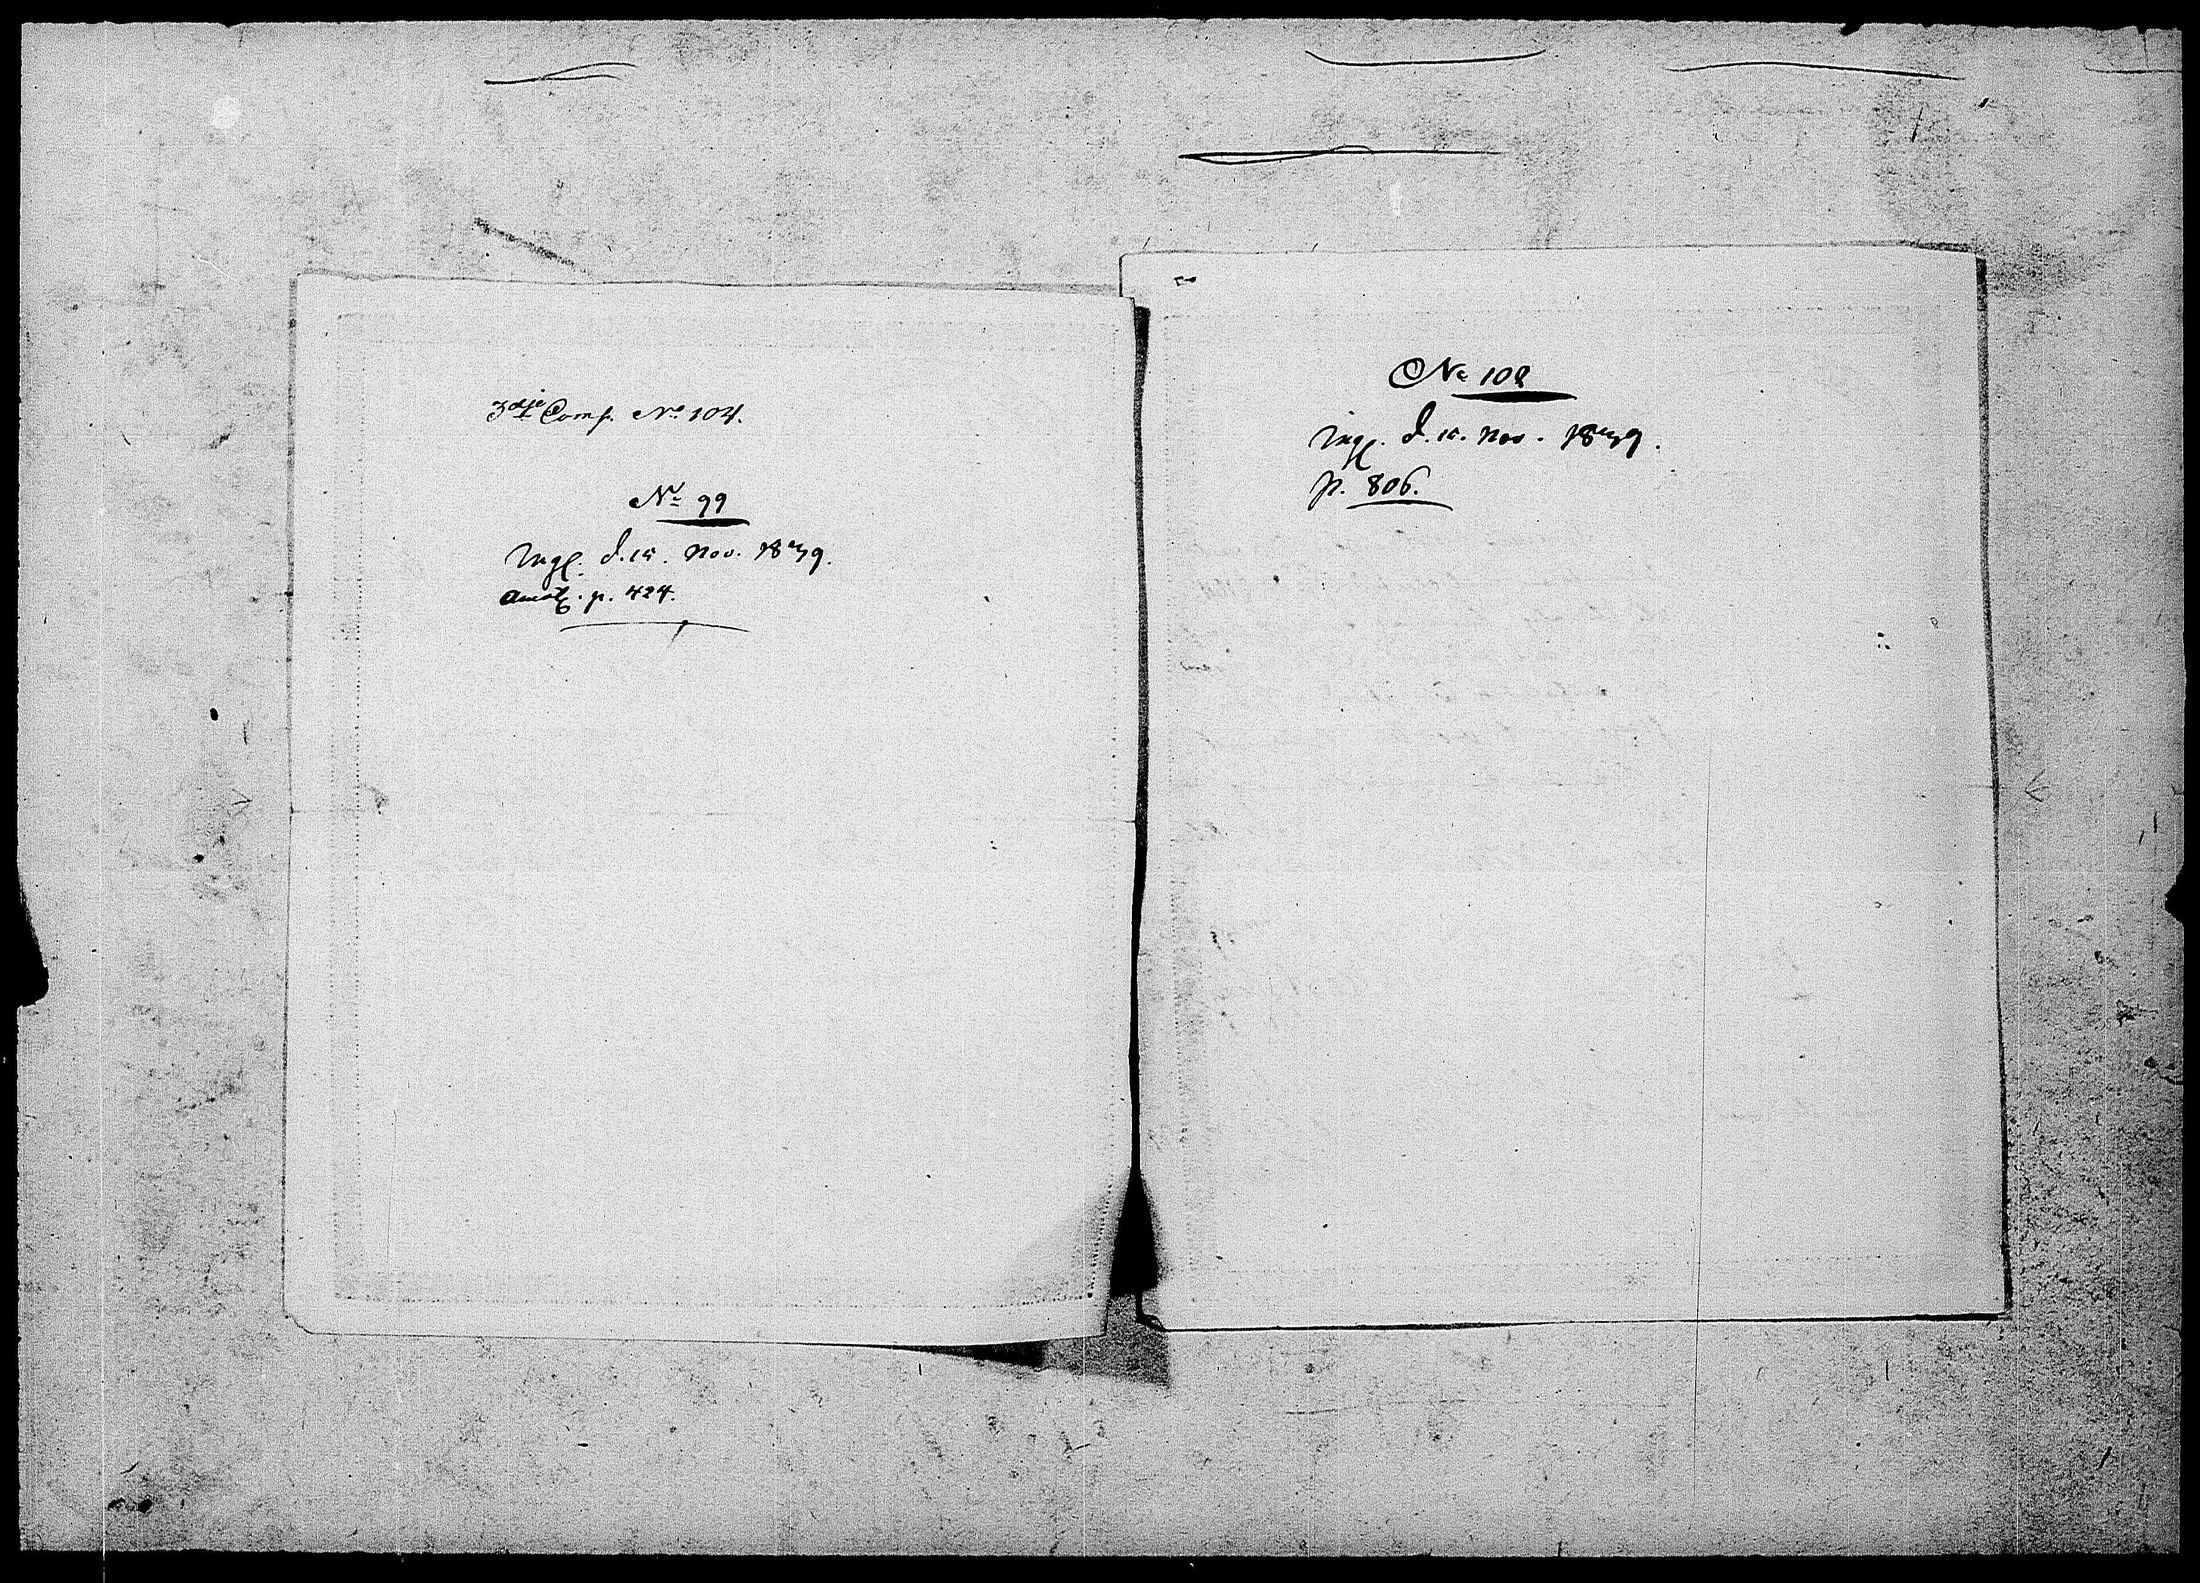 3die Comp. No 104.
No 99
Ingl. d. 15. Nov. 1879.
p. 424.
No 108
Ingl. d. 15. Nov. 1879.
p. 806.